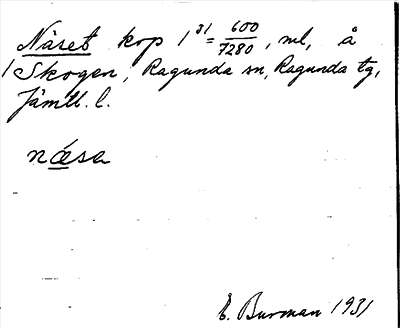 Näset kop 1³¹ = 600/7280, ml, å
/ Skogen, Ragunda sn, Ragunda tg,
Jämtl. l.
næsa
E. Burman 1931